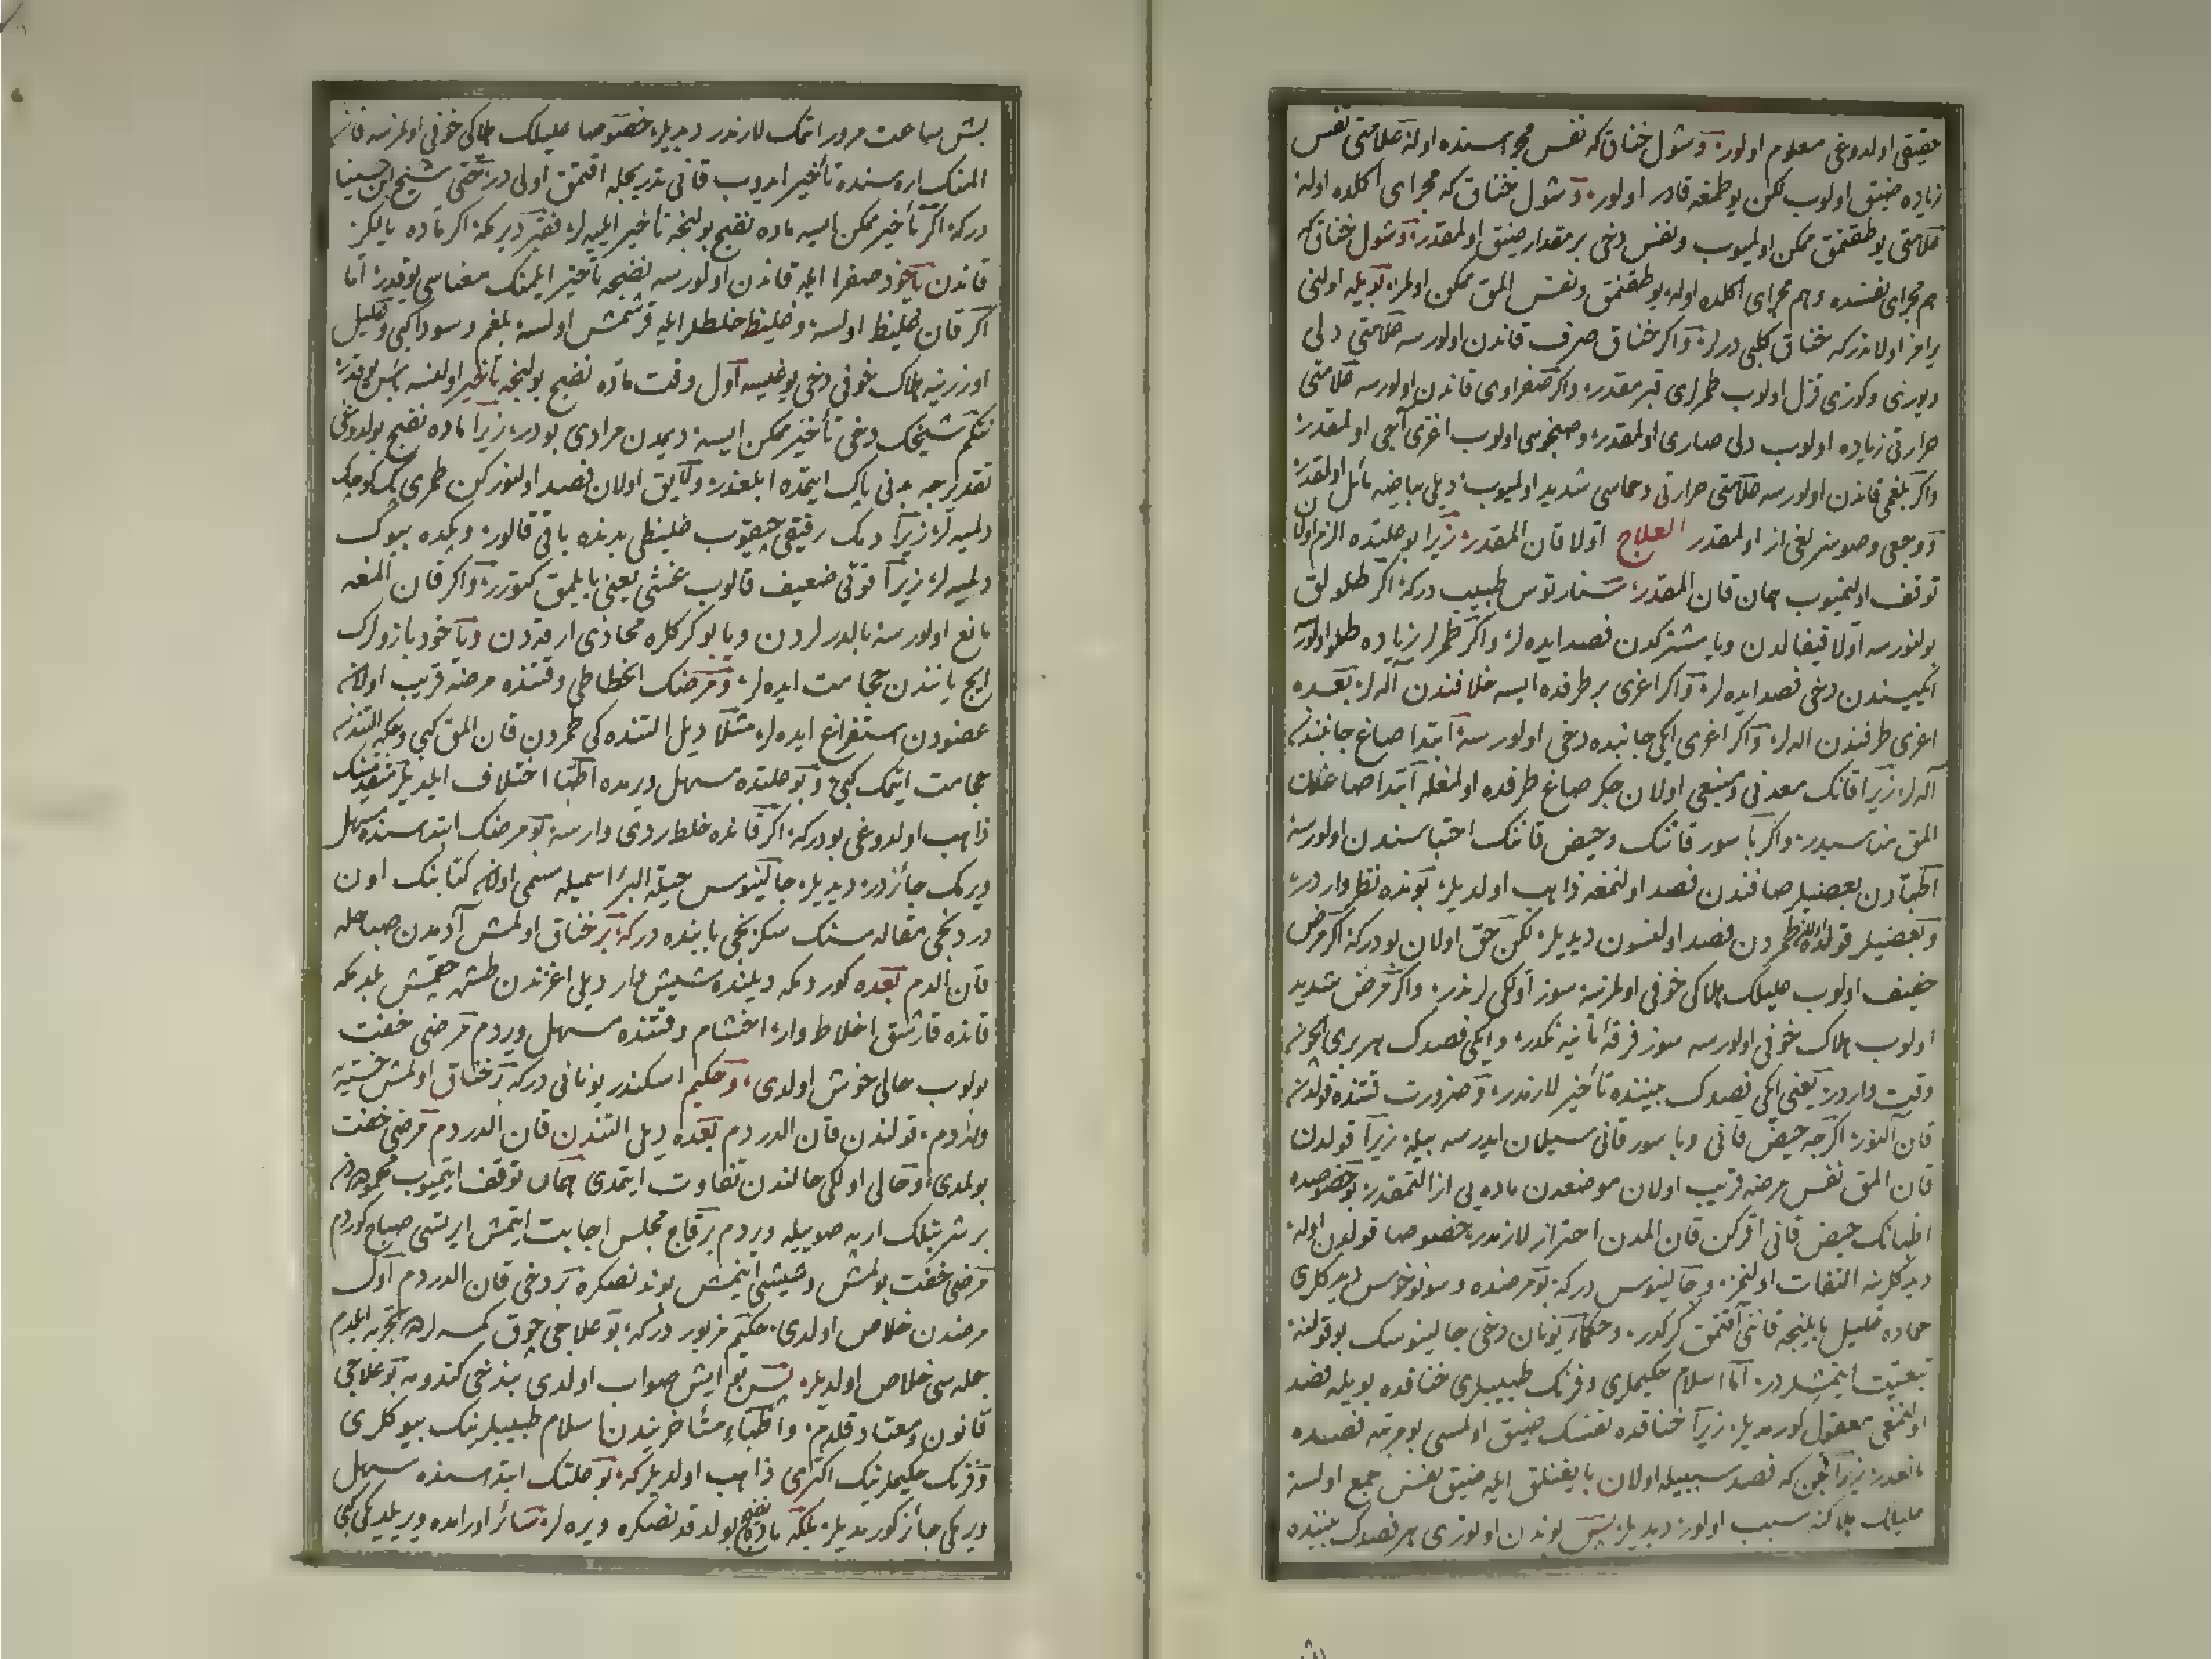 حقیقی اولدوغی معلوم اولور و شول خناق که نفس مجراسنده اوله علامتی نفس
زیاده ضیق اولوب لکن یوطمغه قادر اولور و شول خناق که مجرای اکلده اوله
علامتی یوطقنمق ممکن اولمیوب و نفس دخی بر مقدار ضیق اولمقدر و شول خناق که
هم مجرای نفسده و هم مجرای اکلده اوله یوطقنمق و نفس المق ممکن اولمز بویله اولنی
یرامز اولاندر که خناق کلبی درلر و اکر خناق صرف قاندن اولورسه علامتی دلی
و یوزی و کوزی قزل اولوب طمرلری قبرمقدر و اکر صفراوی قاندن اولورسه علامتی
حرارتی زیاده اولوب دلی صاری اولمقدر و صنجوسی اولوب اغزی آجی اولمقدر
واکر بلغمی قاندن اولورسه علامتی حرارتی و حماسی شدید اولمیوب دیلی بیاضه مائل اولمقدر
و وجعی و صوسزلغی از اولمقدر العلاج اولا قان المقدر زیرا بو علتده الزم اولان
توقف اولنمیوب همان قان المقدر سنارتوس طبیب درکه اکر طلولق
بولنورسه اولا قیفالدن ویا مشترکدن فصد ایده لر و اکر طمرلر زیاده طلو اولورسه
ایکیسندن دخی فصد ایده لر و اکر اغری بر طرفده ایسه خلافندن آله لر بعده
اغری طرفندن اله لر و اکر اغری ایکی جانبده دخی اولورسه ابتدا صاغ جانبندن
آله لر زیرا قانک معدنی و منبعی اولان جکر صاغ طرفده اولمغله ابتدا صاغدان
المق مناسبدر و اکر باسور قاننک و حیض قاننک احتباسندن اولورسه
اطبادن بعضیلر صافندن فصد اولنمغه ذاهب اولدیلر بونده نظر واردر
و بعضیلر قولده اولان طمردن فصد اولنسون دیدیلر لکن حق اولان بودرکه اکر مرض
خفیف اولوب علیلک هلاکی خوفی اولمزسه سوز اولکی لرندر و اکر مرض شدید
اولوب هلاک خوفی اولورسه سوز فرقهٔ ثانیه نکدر و ایکی فصدک هر بری ایچون
وقت واردر یعنی ایکی فصدک بیننده تأخیر لازمدر و ضرورت وقتنده قولدن
قان النور اکرچه حیض قانی و باسور قانی سیلان ایدرسه بیله زیرا قولدن
قان المق نفس مرضه قریب اولان موضعدن ماده یی ازالتمقدر بو خصوصده
اطبانک حیض قانی اقرکن قان المدن احتراز لازمدر خصوصا قولدن اوله
دیدکلرینه التفات اولنمز و جالینوس درکه بو مرضده و سونوخوس دیدکلری
حماده علیل بایلنجه قاننی آقتمق کرکدر و حکماء یونان دخی جالینوسک بو قولنه
تبعیت ایتمشلردر اما اسلام حکیملری و فرنک طبیبلری خناقده بویله فصد
اولنمغی معقول کورمدیلر زیرا خناقده نفسک ضیق اولمسی بو مرتبه فصده
مانعدر زیرا که فصد سببیله اولان بایغنلق ایله ضیق نفس جمع اولسه
علیلک هلاکنه سبب اولور دیدیلر پس بوندن اوتوری هر فصدک بیننده
بش ساعت مرور ایتمک لازمدر دیدیلر خصوصا علیلک هلاکی خوفی اولمزسه قان
المنک اره سنده تأخیر ایدوب قانی تدریجله اقتمق اولی در حتی شیخ ابن سینا
درکه اکر تأخیر ممکن ایسه ماده نضج بولنجه تأخیر ایلیه لر فقیر دیرمکه اکر ماده یالکز
قاندن یاخود صفرا ایله قاندن اولورسه نضجه تأخیر ایلمنک معناسی یوقدر اما
اکر قان غلیظ اولسه و غلیظ خلطلر ایله قرشمش اولسه بلغم و سودا کبی و علیل
اوزرینه هلاک خوفی دخی یوغیسه اول وقت ماده نضج بولنجه تأخیر اولنسه بأس یوقدر
نتکم شیخک دخی تأخیر ممکن ایسه دیمدن مرادی بودر زیرا ماده نضج بولدوغی
تقدیرجه بدنی پاک ایتمده ابلغدر و لایق اولان فصد اولنورکن طمری پک کوچک
دلمیه لر زیرا دمک رقیقی چیقوب غلیظی بدنده باقی قالور و پکده بیوک
دلمیه لر زیرا قوتی ضعیف قالوب غشی یعنی بایلمق کتورر و اکر قان المغه
مانع اولورسه بالدرلردن و یا بوکرکلره محاذی ارقه دن و یاخود بازولرک
ایچ یانندن حجامت ایده لر و مرضک انحطاطی وقتنده مرضه قریب اولان
عضودن استفراغ ایده لر مثلا دیل التنده کی طمردن قان المق کبی و چکه التندن
حجامت ایتمک کبی و بو علتده مسهل ویرمده اطبا اختلاف ایلدیلر متقدمینک
ذاهب اولدوغی بودرکه اکر قانده خلط ردی وارسه بو مرضک ابتداسنده مسهل
ویرمک جائزدر دیدیلر جالینوس حیلة البرء اسمیله مسمی اولان کتابنک اون
دردنجی مقاله سنک سکزنجی بابنده درکه بر خناق اولمش آدمدن صباحله
قان الدم بعده کوردمکه دیلنده شیش وار دیلی اغزندن طشره چقمش بلدمکه
قانده قارشق اخلاط وار اخشام وقتنده مسهل ویردم مرضی خفت
بولوب حالی خوش اولدی و حکیم اسکندر یونانی درکه بر خناق اولمش خسته یه
واردم قولندن قان الدردم بعده دیل التندن قان الدردم مرضی خفت
بولمدی و حالی اولکی حالندن تفاوت ایتمدی همان توقف ایتمیوب محمودەدن
بر شربتلک اربه صوییله ویردم بر قاج مجلس اجابت ایتمش ایرتسی صباح کوردم
مرضی خفت بولمش و شیشی اینمش بوندنصکره بر دخی قان الدردم اول
مرضدن خلاص اولدی حکیم مزبور درکه بو علاجی چوق کمسه لرده تجربه ایلدم
جمله سی خلاص اولدیلر پس بو ایش صواب اولدی بندخی کندومه بو علاجی
قانون و معتاد قلدم و اطباء متأخریندن اسلام طبیبلرینک بیوکلری
و فرنک حکیملرینک اکثری ذاهب اولدیلرکه بو علتک ابتداسنده مسهل
ویرمکی جائز کورمدیلر بلکه ماده نضج بولدقدنصکره ویره لر سائر اورامده ویریلدیکی کبی